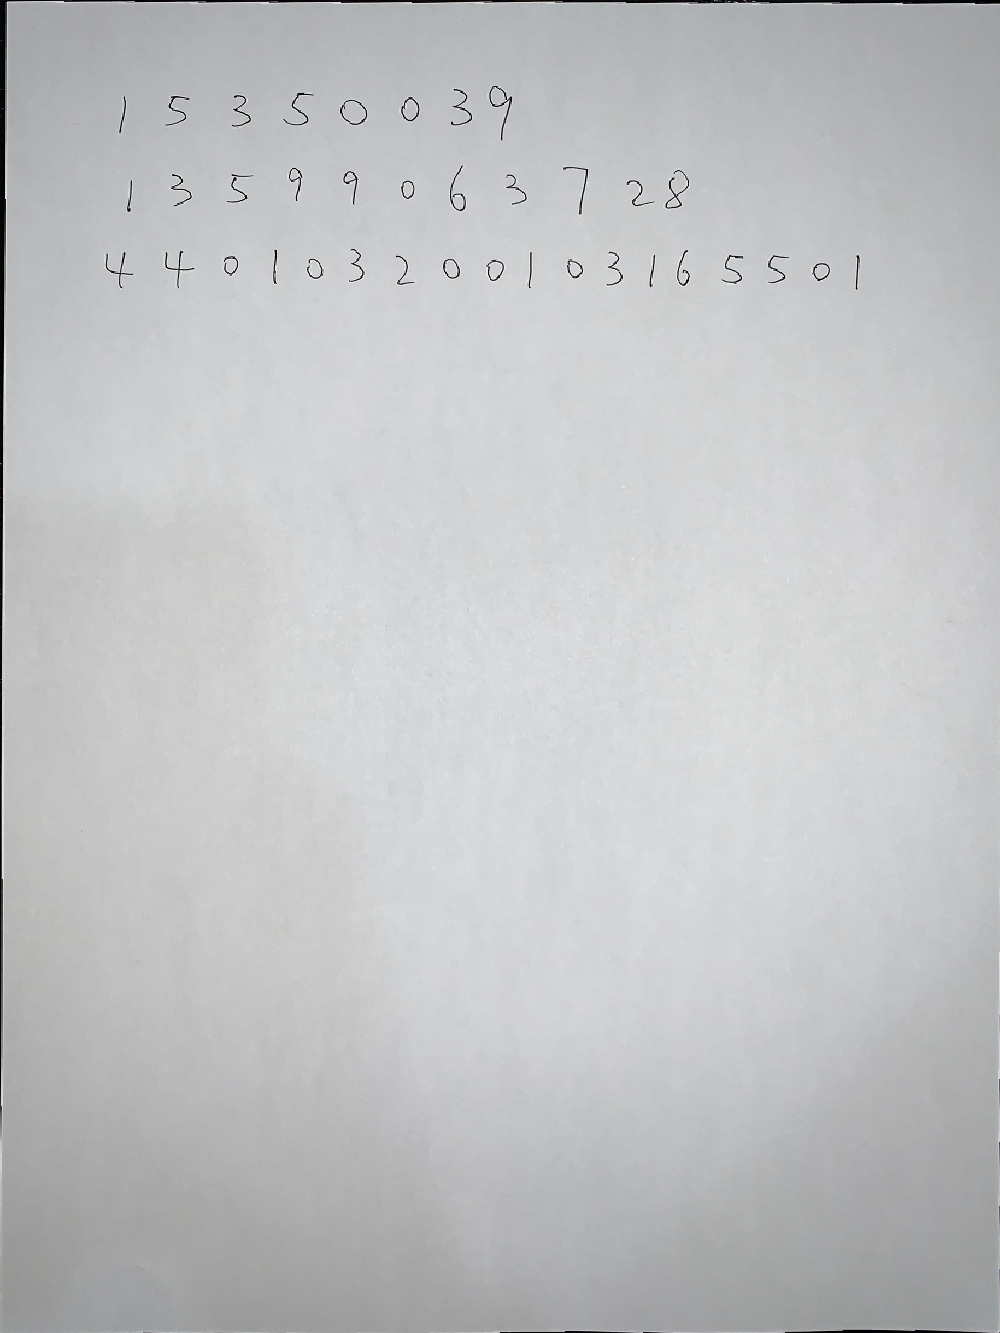 1 5 3 5 0 0 3 9
1 3 5 9 9 0 6 3 7 2 8
4 4 0 1 0 3 2 0 0 1 0 3 1 6 5 5 0 1